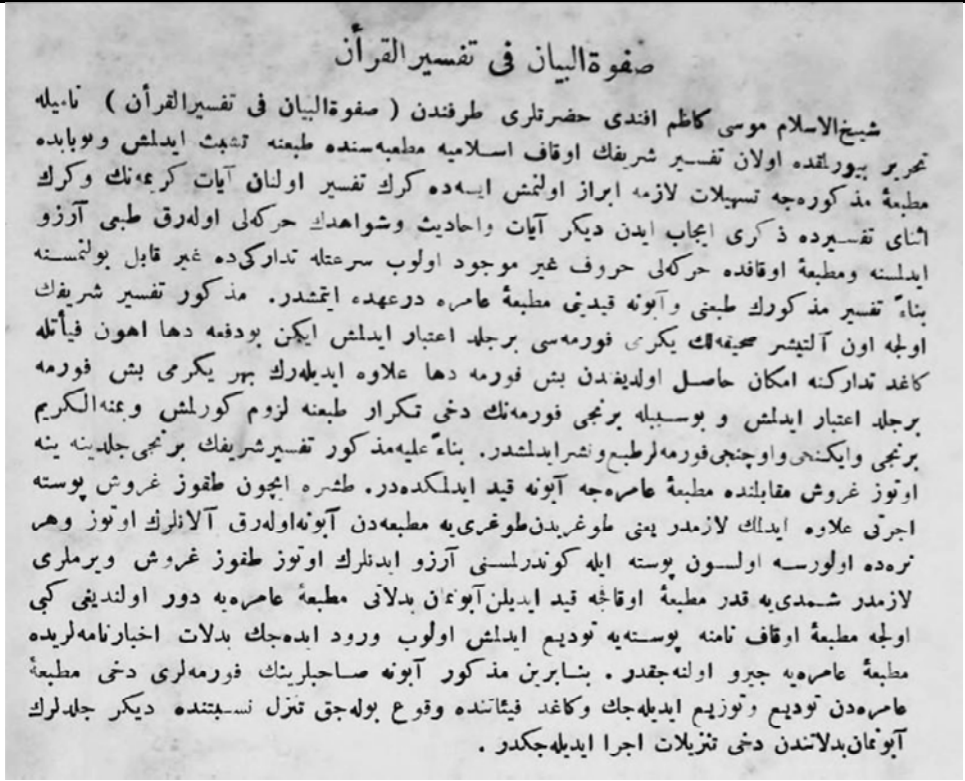 صفوةالبيان فى تفسيرالقرأن
شيخ‌الاسلام موسى كاظم افندى حضرتلرى طرفندن ( صفوةالبيان فى تفسيرالقرأن ) ناميله
تحرير بيورلمقده اولان تفسير شريفك اوقاف اسلاميه مطعبه‌سنده طبعنه تشبث ايدلمش وبوبابده
مطبعۀ مذكوره‌جه تسهيلات لازمه ابراز اولنمش ايسه‌ده كرك تفسير اولنان آيات كريمه‌نك وكرك
اثناى تفسيرده ذكرى ايجاب ايدن ديكر آيات واحاديث وشواهدك حركه‌لى اوله‌رق طبعى آرزو
ايدلسنه ومطبعۀ اوقافده حركه‌لى حروف غير موجود اولوب سرعتله تداركى‌ده غير قابل بولنمسنه
بناءً تفسير مذكورك طبعنى وآبونه قيدينى مطبعۀ عامره درعهده ايتمشدر. مذكور تفسير شريفك
اولجه اون آلتيشر صحيفه‌لك يكرمى فورمه‌سى برجلد اعتبار ايدلمش ايكن بودفعه دها اهون فيأتله
كاغد تداركنه امكان حاصل اولديغندن بش فورمه دها علاوه ايديله‌رك بهر يكرمى بش فورمه
برجلد اعتبار ايدلمش و بوسببله برنجى فورمه‌نك دخى تكرار طبعنه لزوم كورلمش وبمنه‌الكريم
برنجى وايكنجى واوچنجى فورمه‌لر طبع ونشر ايدلمشدر. بناءً عليه مذكور تفسير شريفك برنجى جلدينه ينه
اوتوز غروش مقابلنده مطبعۀ عامره‌جه آبونه قيد ايدلمكده‌در. طشره ايچون طقوز غروش پوسته
اجرتى علاوه ايدلك لازمدر يعنى طوغريدن طوغرى‌يه مطبعه‌دن آبونه اوله‌رق آلانلرك اوتوز وهر
نره‌ده اولورسه اولسون پوسته ايله كوندرلمسنى آرزو ايدنلرك اوتوز طقوز غروش ويرملرى
لازمدر شمدى‌يه قدر مطبعۀ اوقافجه قيد ايديلن آبونمان بدلاتى مطبعۀ عامره‌يه دور اولنديغى كبى
اولجه مطبعۀ اوقاف نامنه پوسته‌يه توديع ايدلمش اولوب ورود ايده‌جك بدلات اخبارنامه‌لريده
مطبعۀ عامره‌يه جيرو اولنه‌جقدر . بنابرين مذكور آبونه صاحبلرينك فورمه‌لرى دخى مطبعۀ
عامره‌دن توديع وتوزيع ايديله‌جك وكاغد فيئاتنده وقوع بوله‌جق تنزل نسبتنده ديكر جلدلرك
آبونمان بدلاتندن دخى تنزيلات اجرا ايديله‌جكدر .